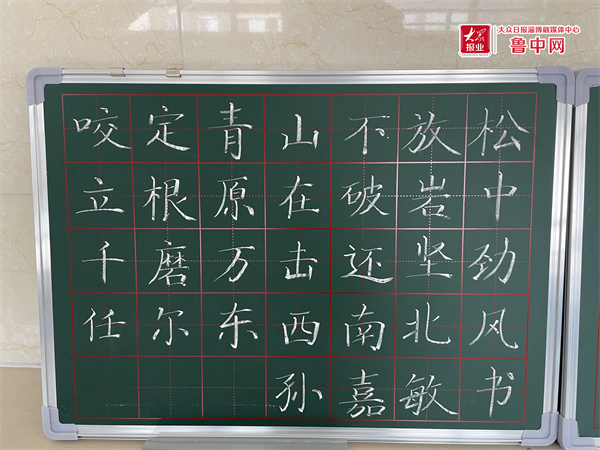 大众
报业
大众日报淄博融媒体中心
鲁中网
咬定青山不放松
立根原在破岩中
千磨万击还坚劲
任尔东西南北风
孙嘉敏书